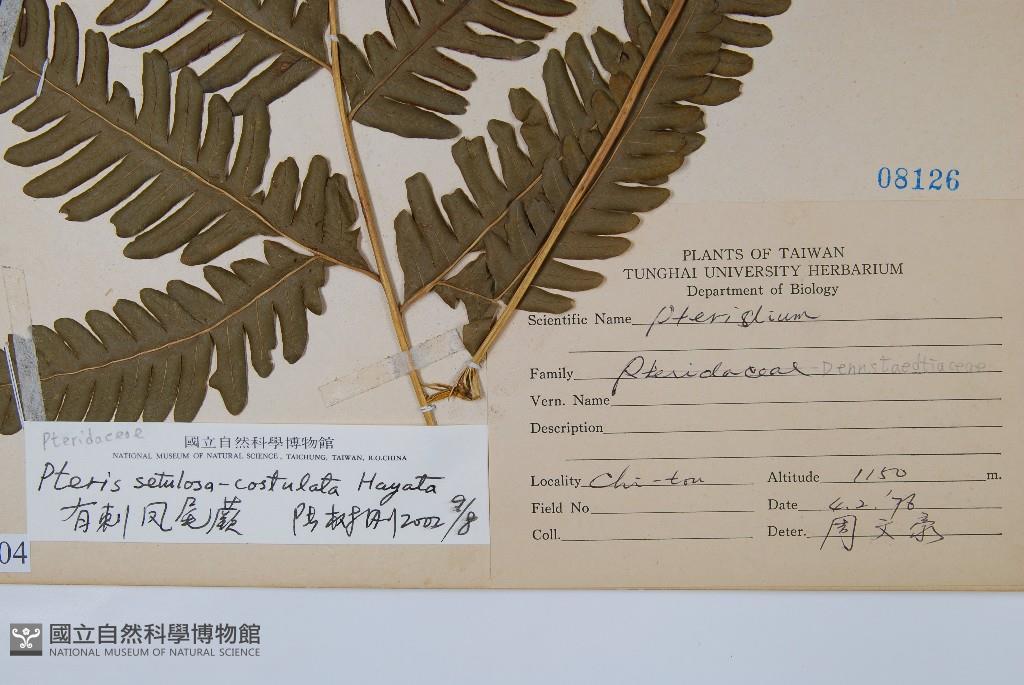 08126
PLANTS OF TAIWAN
TUNGHAI UNIVERSITY HERBARIUM
Department of Biology
Scientific Name Pteridium
Family Pteridaceae - Dennstaedtiaceae
Vern. Name
Description
Locality Chi-tou Altitude 1150 m.
Field No. Date 4.2.'76
Coll. Deter. 周文豪
Pteridaceae
國立自然科學博物館
NATIONAL MUSEUM OF NATURAL SCIENCE, TAICHUNG, TAIWAN, R.O.CHINA
Pteris setulosa-costulata Hayata
有刺凤尾蕨 2002 9/8
04
國立自然科學博物館
NATIONAL MUSEUM OF NATURAL SCIENCE